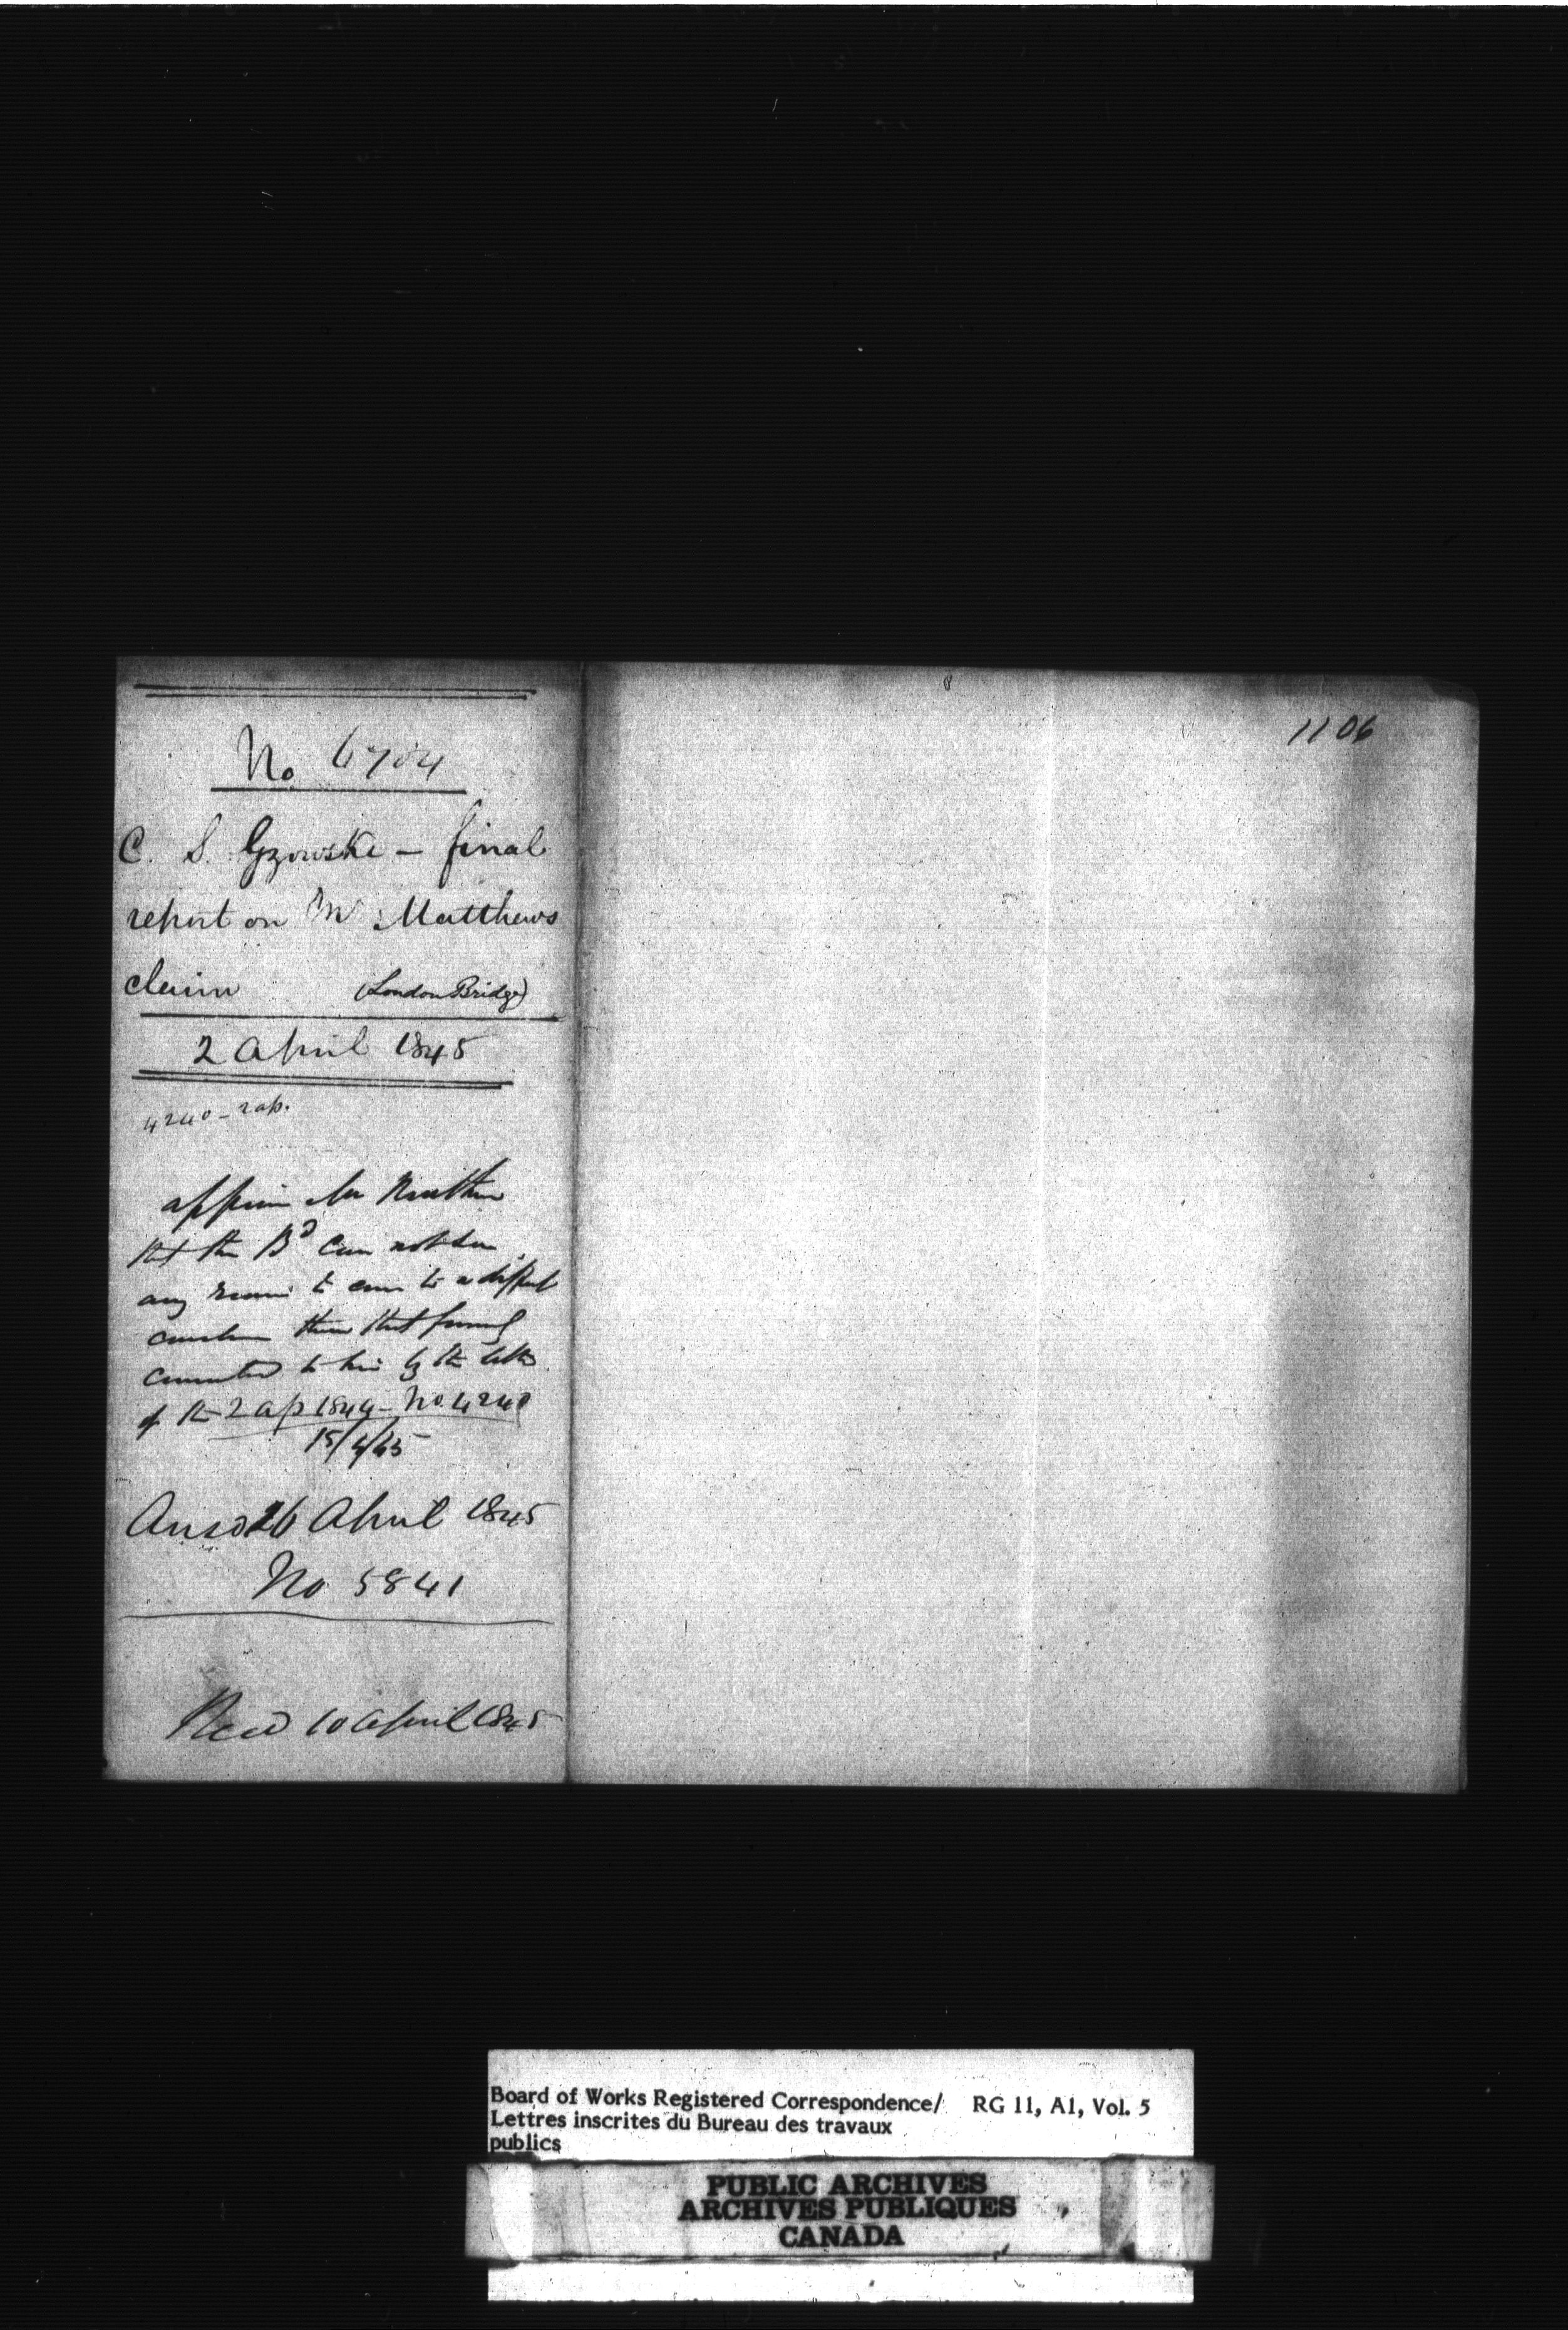 No 6704
C. S. Gzowski – final
report on Mr Matthews
claim (London Bridge)
2 April 1845
4240 – 2 ap.
that the Bd can not see
any reason to come to a different
than that
to him by the letter
of the 2 ap 1844 – No. 4240
15/4/45
Ansd 26 April 1845
No 5841
Recd 10 April 1845
1106
Board of Works Registered Correspondence/ RG 11, A1, Vol. 5
Lettres inscrites du Bureau des travaux
publics
PUBLIC ARCHIVES
ARCHIVES PUBLIQUES
CANADA